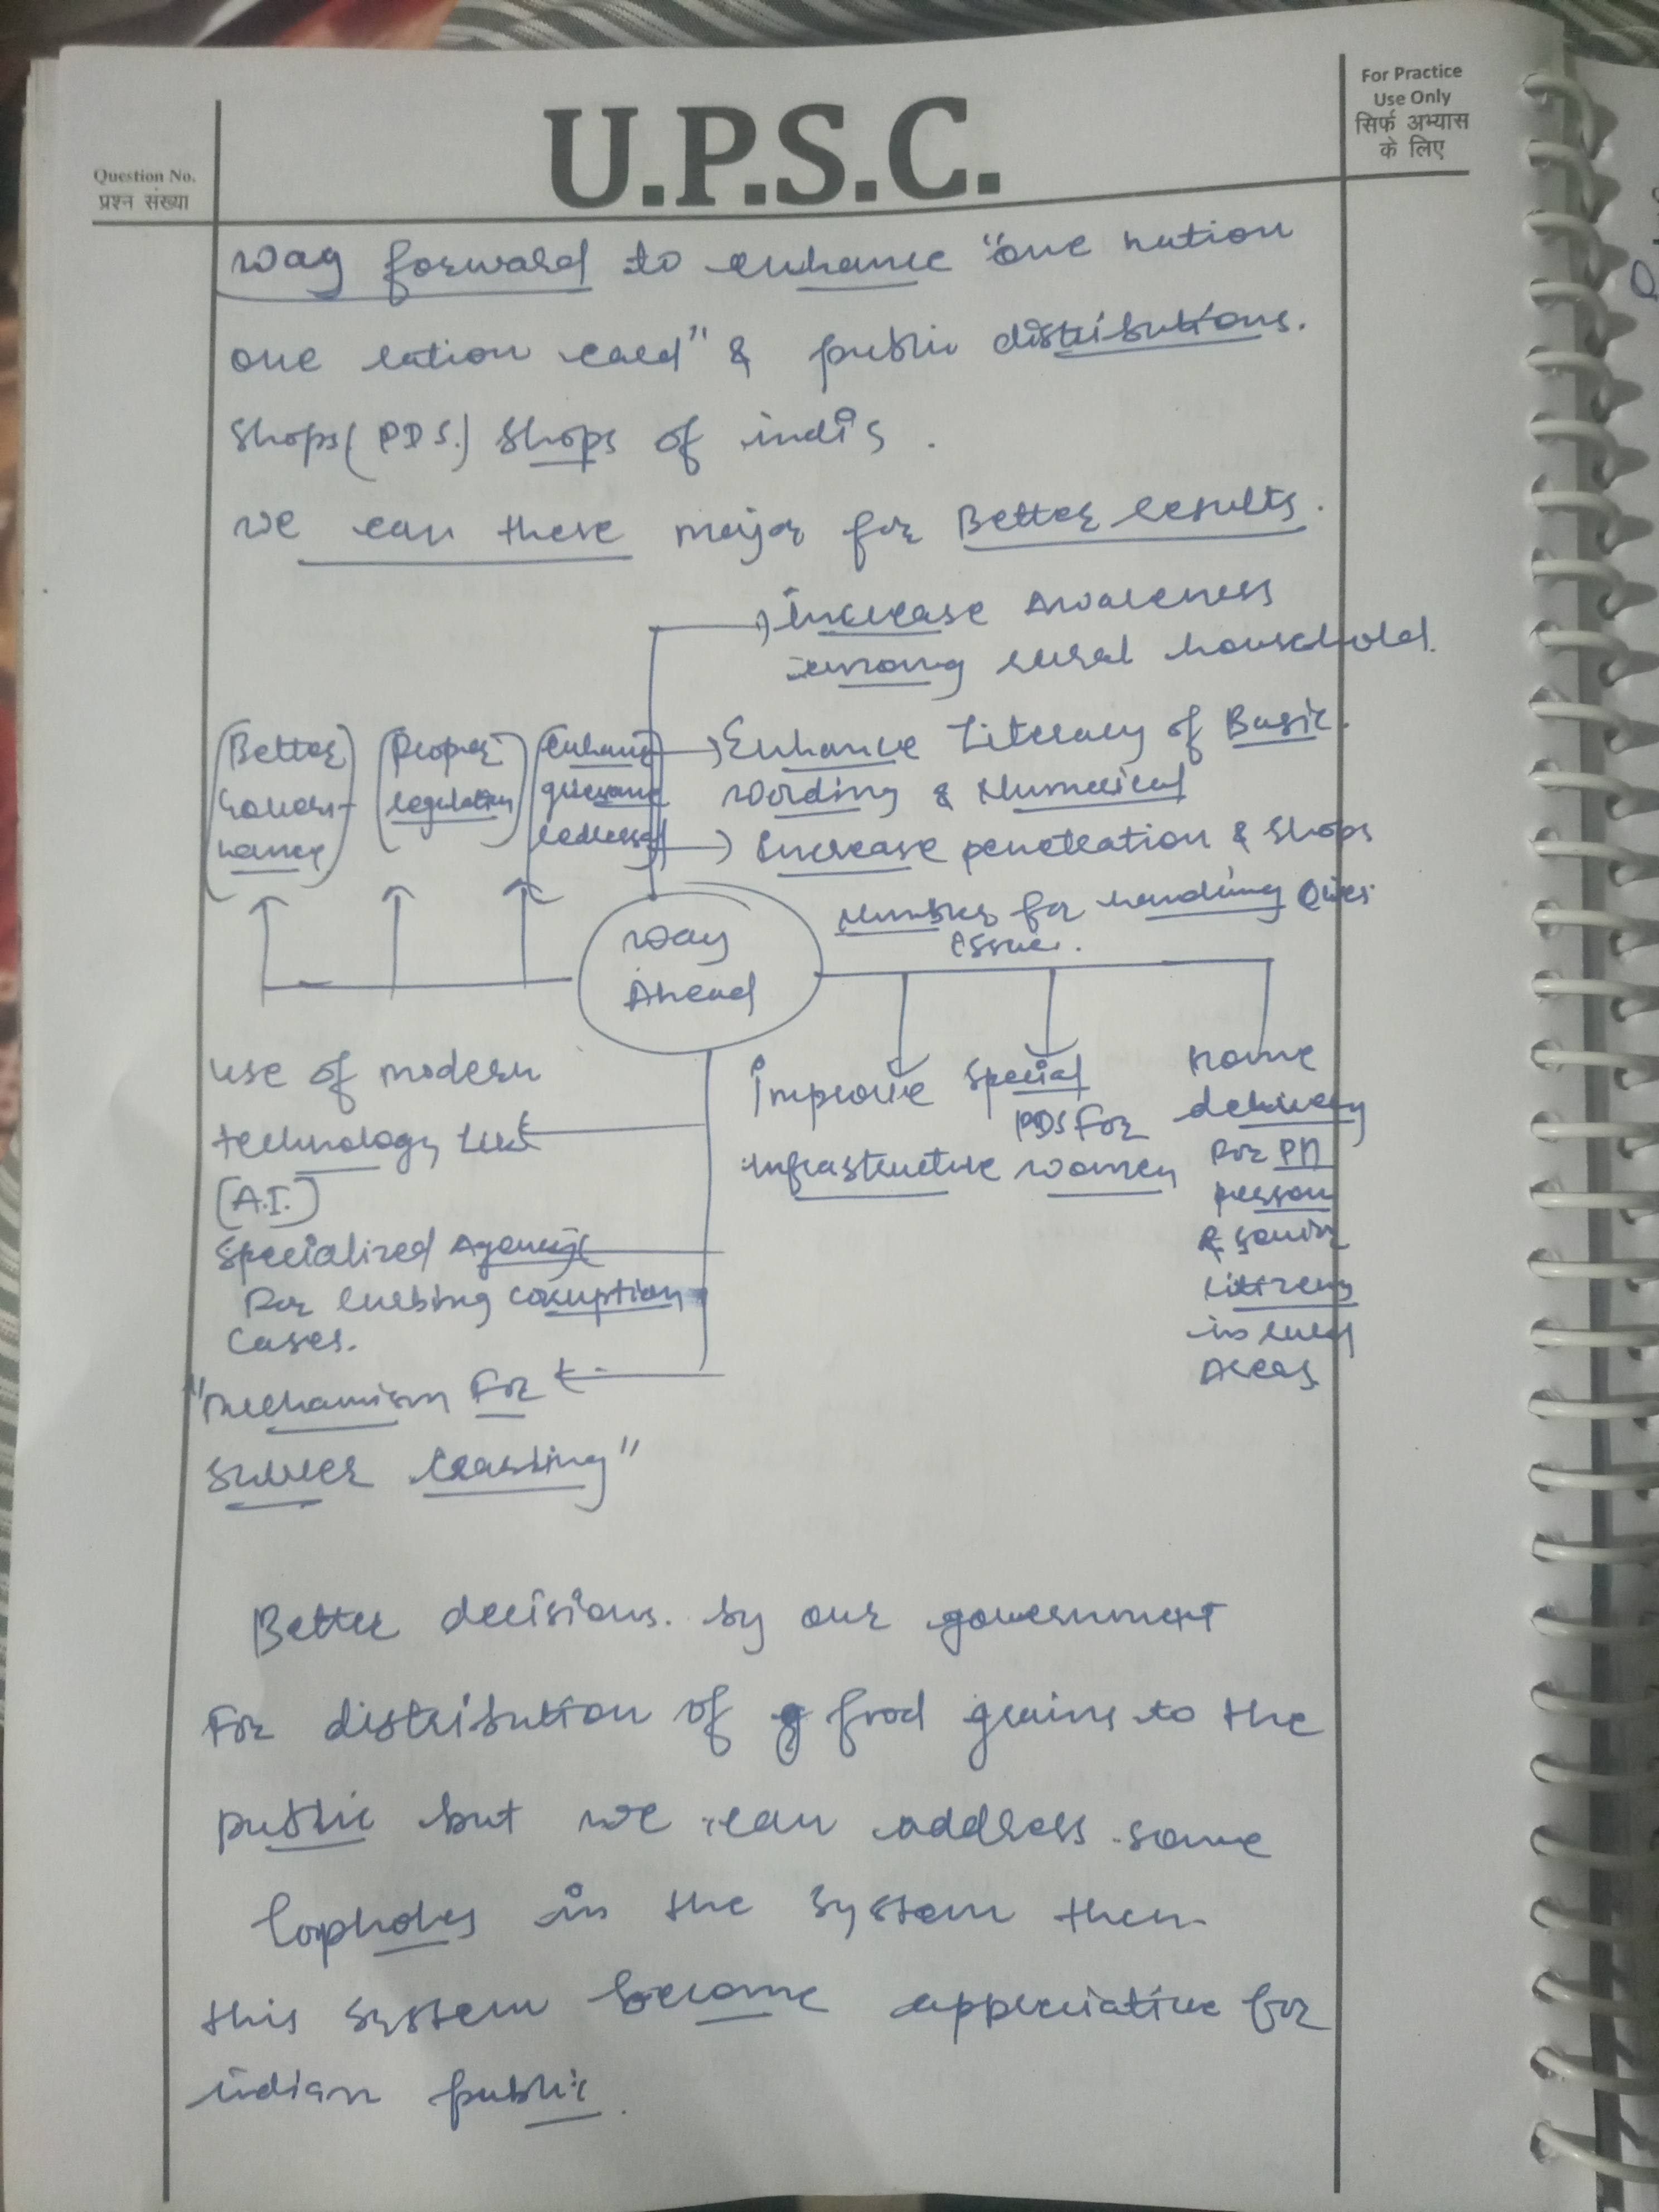 For Practice
Use Only
सिर्फ अभ्यास
के लिए
U.P.S.C.
Question No.
प्रश्न संख्या
way forward to enhance "one nation
one ration card" & public distributions.
shops (PDS.) shops of india .
we can these major for Better results.
Increase Awareness
among rural household.
Better
Governance
Proper
regulation
Enhance
grievance
redressal
Enhance Literacy of Basic.
wording & Numerical
Increase penetration & shops
Number for handling
issue.
Way
Ahead
use of modern
technology like
[A.I.]
Specialized Agency
for curbing corruption
cases.
"mechanism for
server crashing"
Improve
infrastructure
special
PDS for
women
home
delivery
for PH
person
& senior
citizens
in rural
Areas
Better decisions. by our government
for distribution of g food grains to the
public but we can address some
loopholes in the system then
this system become appreciative for
indian public.